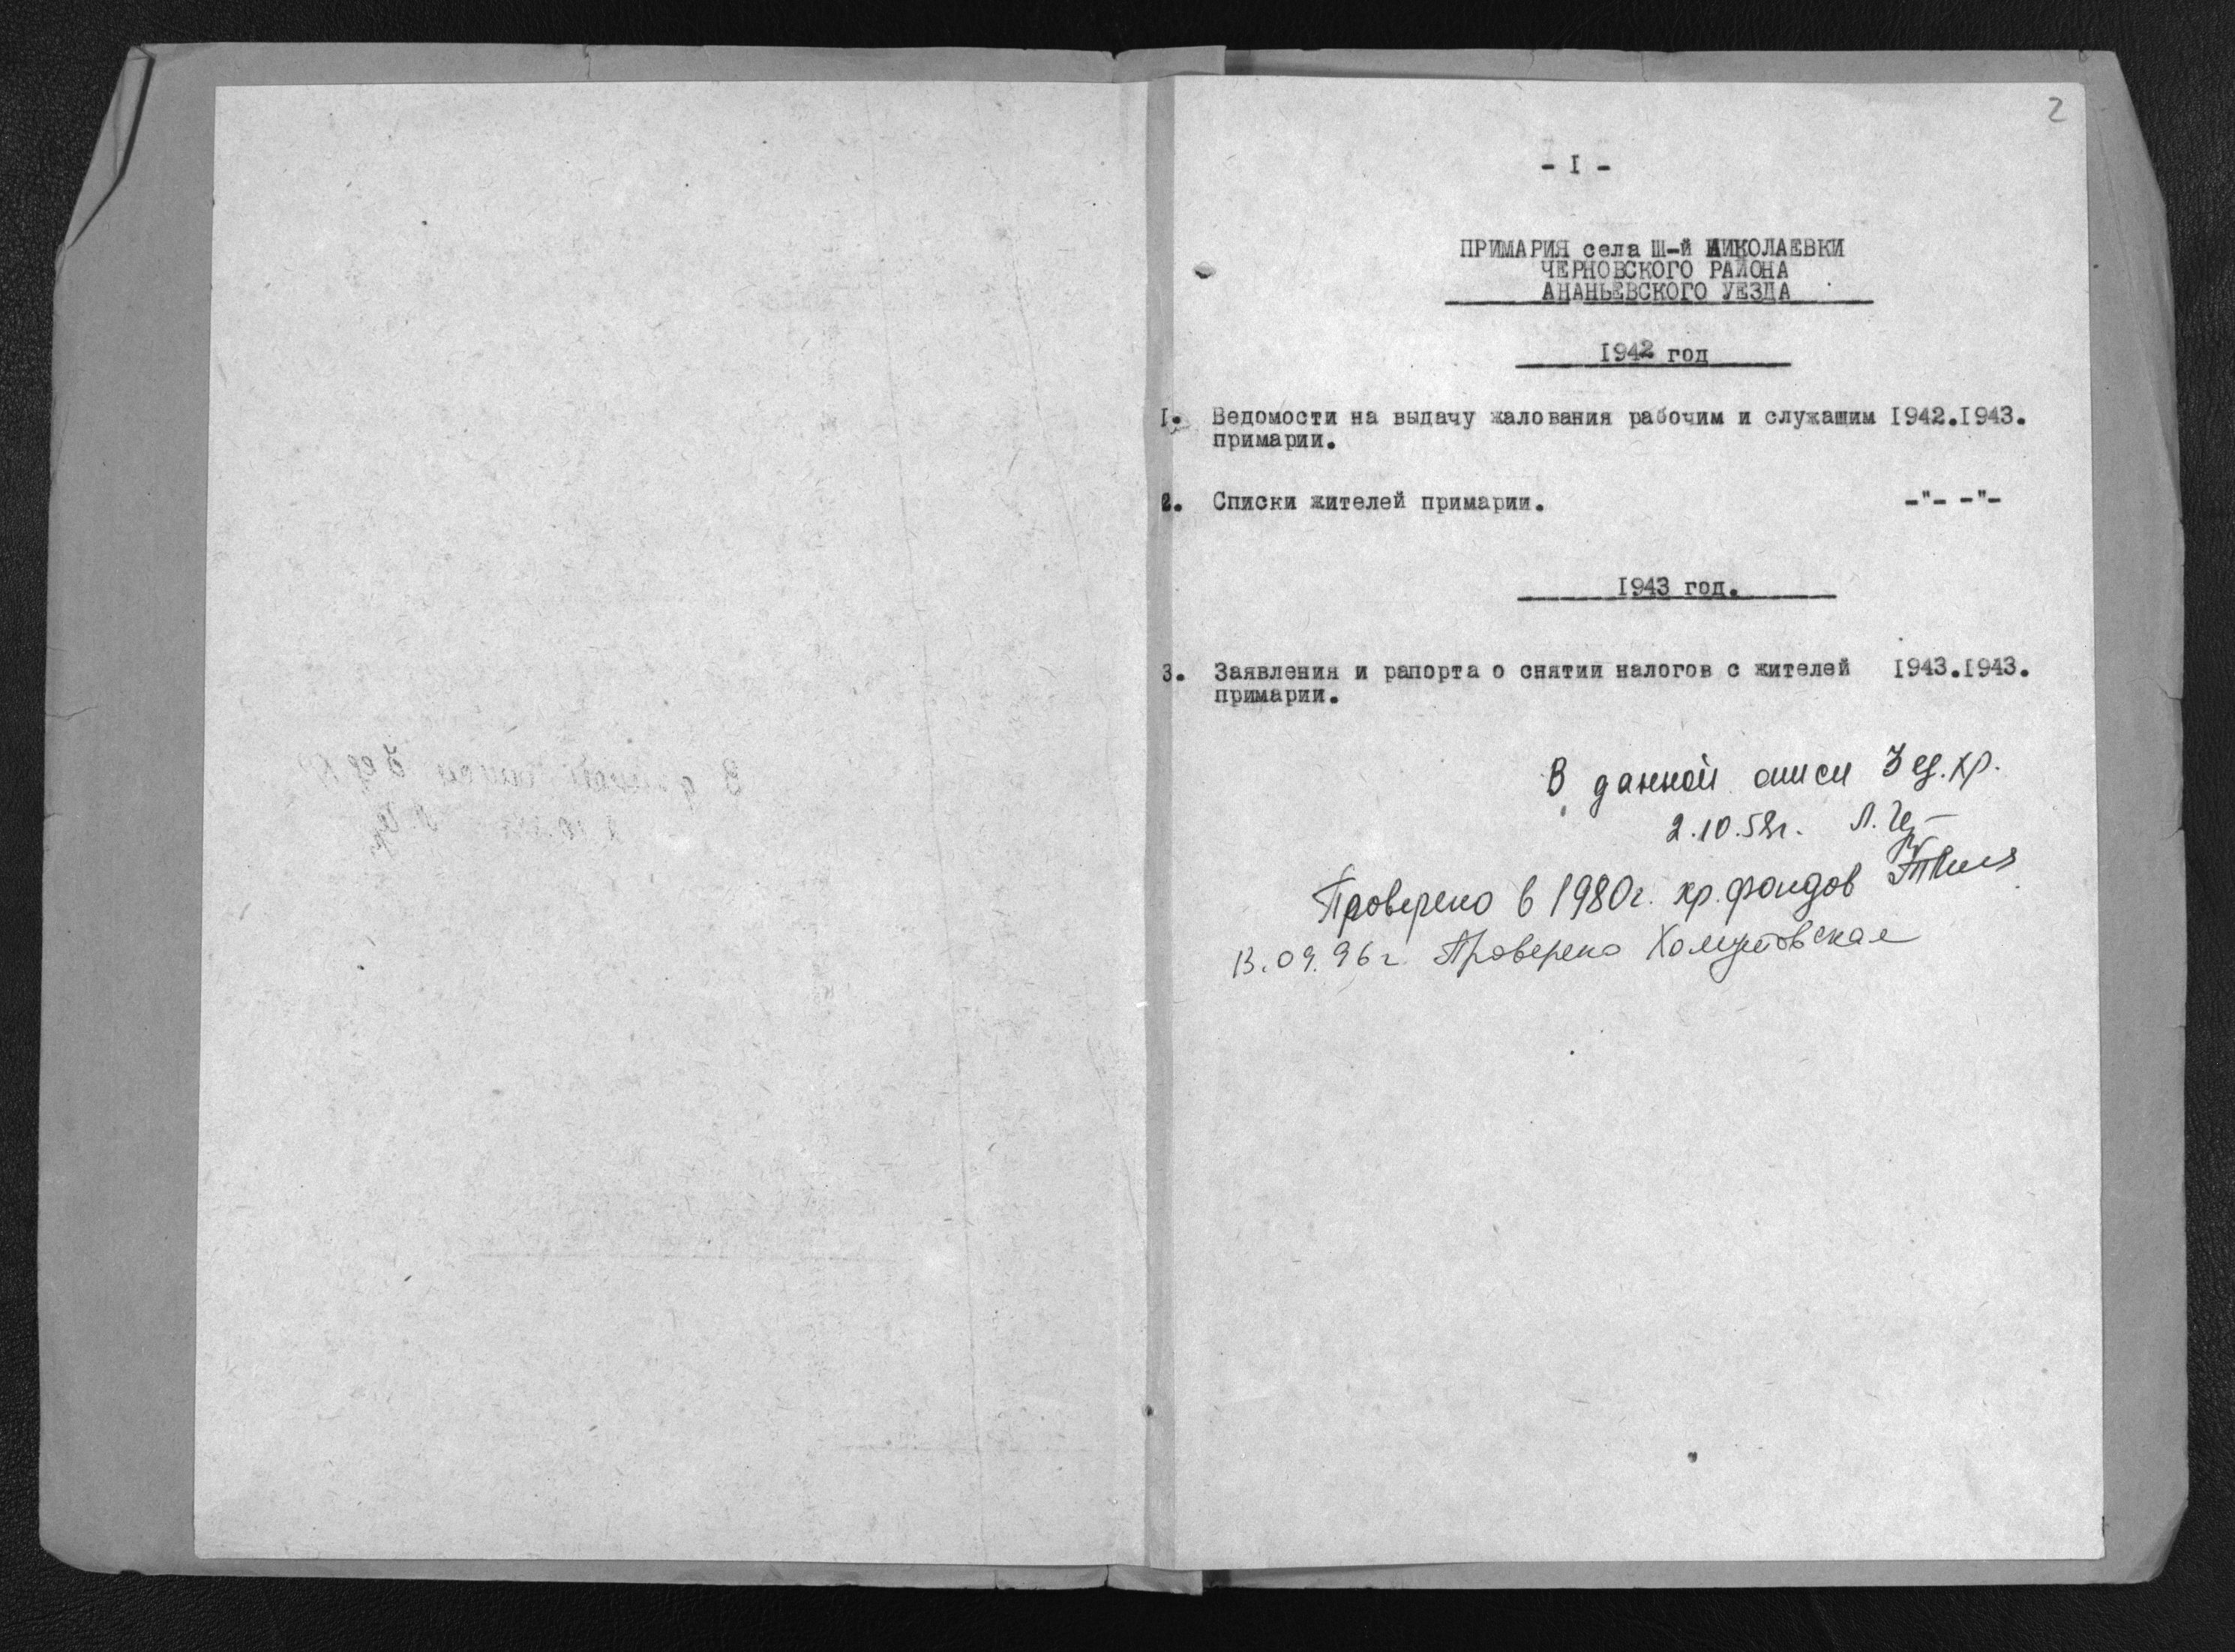 2
- I -
ПРИМАРИЯ села Ш-й НИКОЛАЕВКИ
ЧЕРНОВСКОГО РАЙОНА
АНАНЬЕВСКОГО УЕЗДА
1942 год
I. Ведомости на выдачу жалования рабочим и служащим 1942.1943.
примарии.
2. Списки жителей примарии. -"- -"-
1943 год.
3. Заявления и рапорта о снятии налогов с жителей 1943.1943.
примарии.
В данной описи 3 ед. хр.
2.10.58г.
Проверено в 1980г. хр. фондов
13.09.96г. Проверено Хомутовская